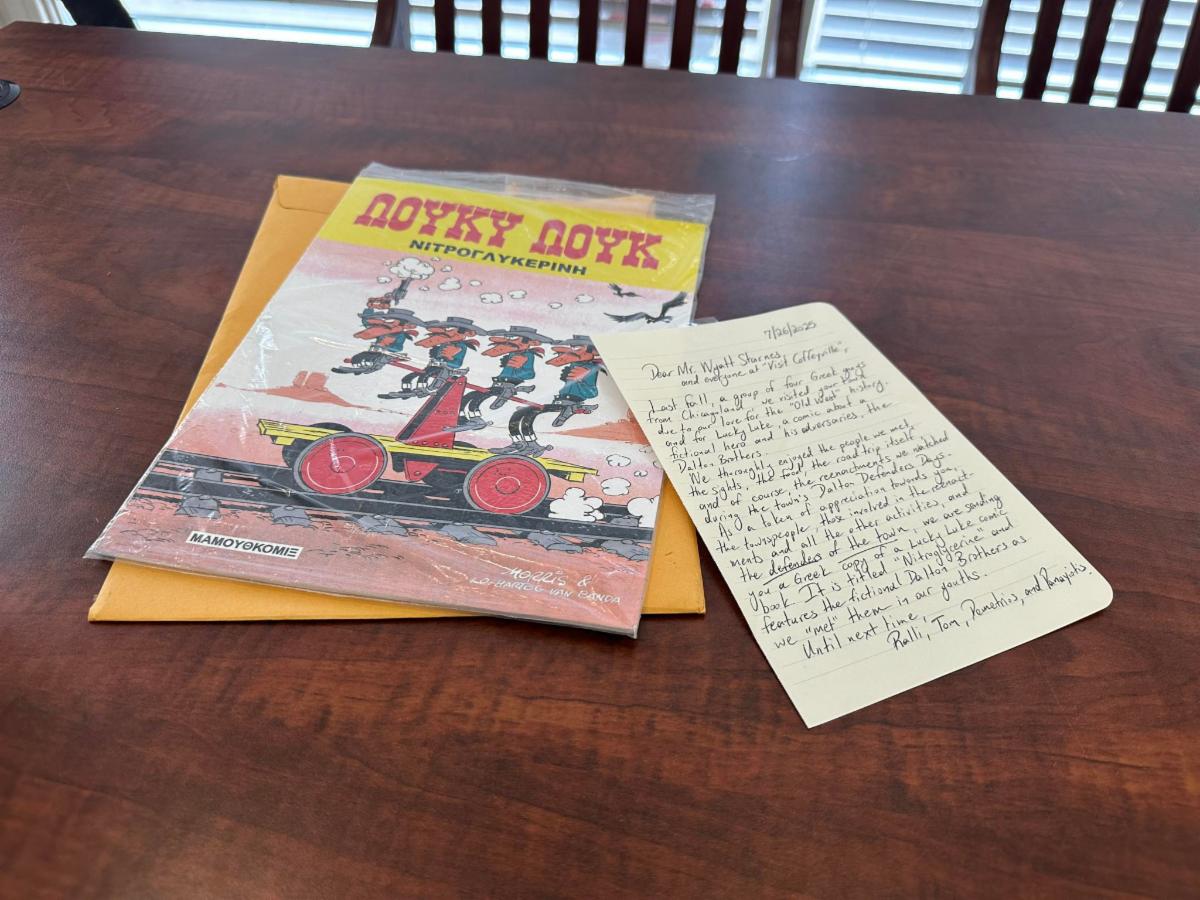 ΛΟΥΚΥ ΛΟΥΚ
ΝΙΤΡΟΓΛΥΚΕΡΙΝΗ
ΜΑΜΟΥΘΚΟΜΙΞ
MORRIS &
LO HARTOG VAN BANDA
7/26/2025
Dear Mr. Wyatt Starnes
and everyone at "Visit Coffeyville",
Last fall, a group of four Greek guys
from Chicagoland, we visited your town
due to our love for the "Old West" history.
and for Lucky Luke, a comic about a
fictional hero and his adversaries, the
Dalton Brothers.
We thoroughly enjoyed the people we met,
the sights, the food, the road trip itself,
and of course, the reenactments we watched
during the town's Dalton Defenders Days.
As a token of appreciation towards you,
the townspeople, those involved in the reenact-
ments and all the other activities, and
the defenders of the town, we are sending
you a Greek copy of a Lucky Luke comic
book. It is titled "Nitroglycerine" and
features the fictional Dalton Brothers as
we "met" them in our youths.
Until next time,
Ralli, Tom, Demetrios, and Panayotis